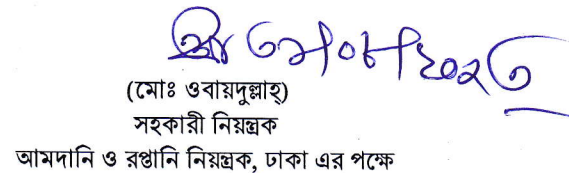 (মোঃ ওবায়দুল্লাহ্)
সহকারী নিয়ন্ত্রক
আমদানি ও রপ্তানি নিয়ন্ত্রক, ঢাকা এর পক্ষে